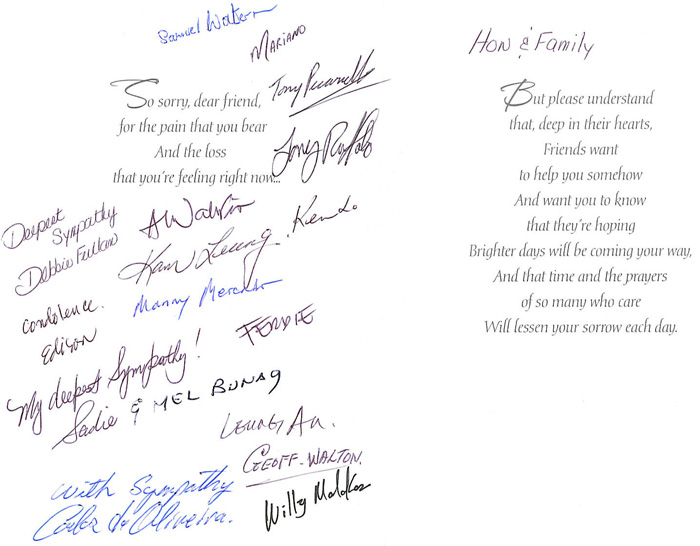 Samuel Watson
MARIANO
Tony
So sorry, dear friend,
for the pain that you bear
And the loss
that you're feeling right now...
Tony Ruffolo
Deepest
Sympathy
Debbie
A Walton
Kam Leung
Kendo
Condolence.
Edison
Manny Mercado
FERDIE
My deepest Sympathy!
Sadie & MEL BUNAG
LEUNG AU.
GEOFF-WALTON.
With Sympathy
de Oliveira.
Willy
HON & Family
But please understand
that, deep in their hearts,
Friends want
to help you somehow
And want you to know
that they're hoping
Brighter days will be coming your way,
And that time and the prayers
of so many who care
Will lessen your sorrow each day.